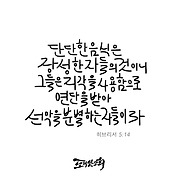 단단한 음식은
장성한 자들의 것이니
그들은 지각을 사용함으로
연단을 받아
선악을 분별하는 자들이라
히브리서 5:14